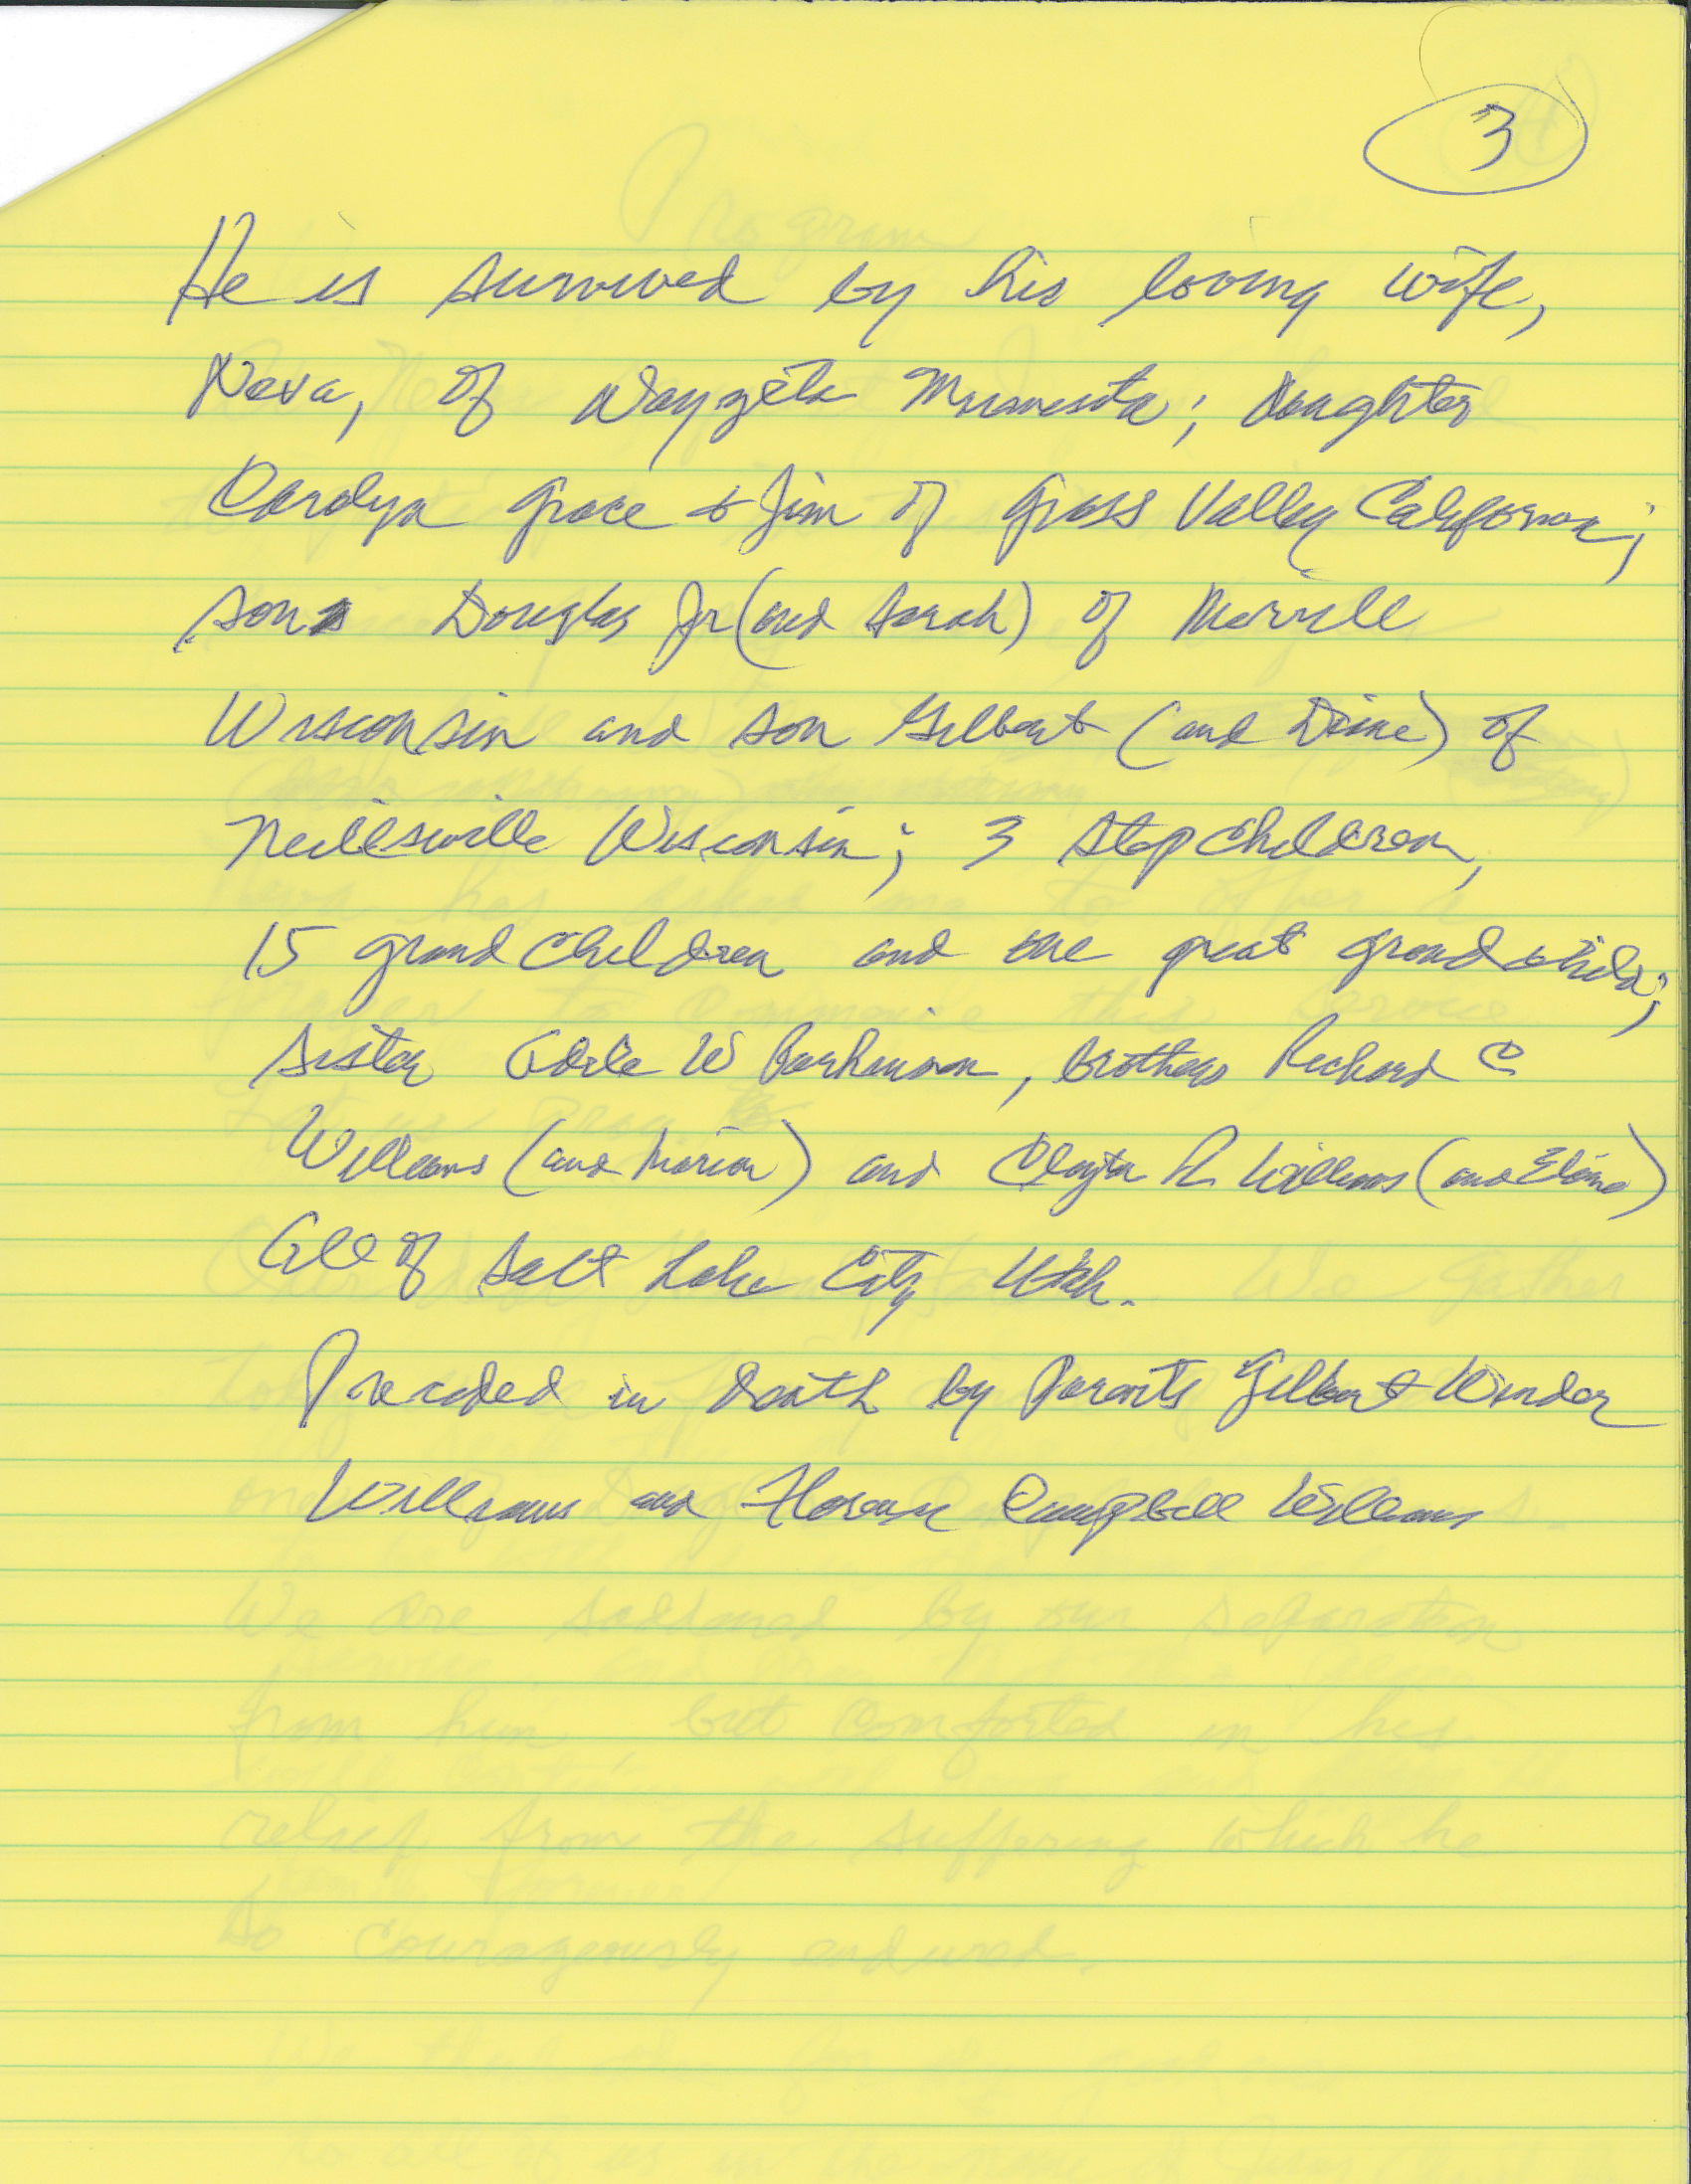 3
He is survived by his loving wife,
Neva, of Wayzeta Minnesota; daughter
Carolyn Grace & Jim of Grass Valley California;
son Douglas Jr (and Sarah) of Merrill
Wisconsin and son Gilbert (and Diane) of
Neillsville Wisconsin; 3 step children,
15 grand children and one great grand child;
sister Adele W Parkinson, brothers Richard C
Williams (and Marian) and Clayton R Williams (and Elaine)
All of Salt Lake City Utah.
Preceded in death by parents Gilbert Winder
Williams and Florence Campbell Williams